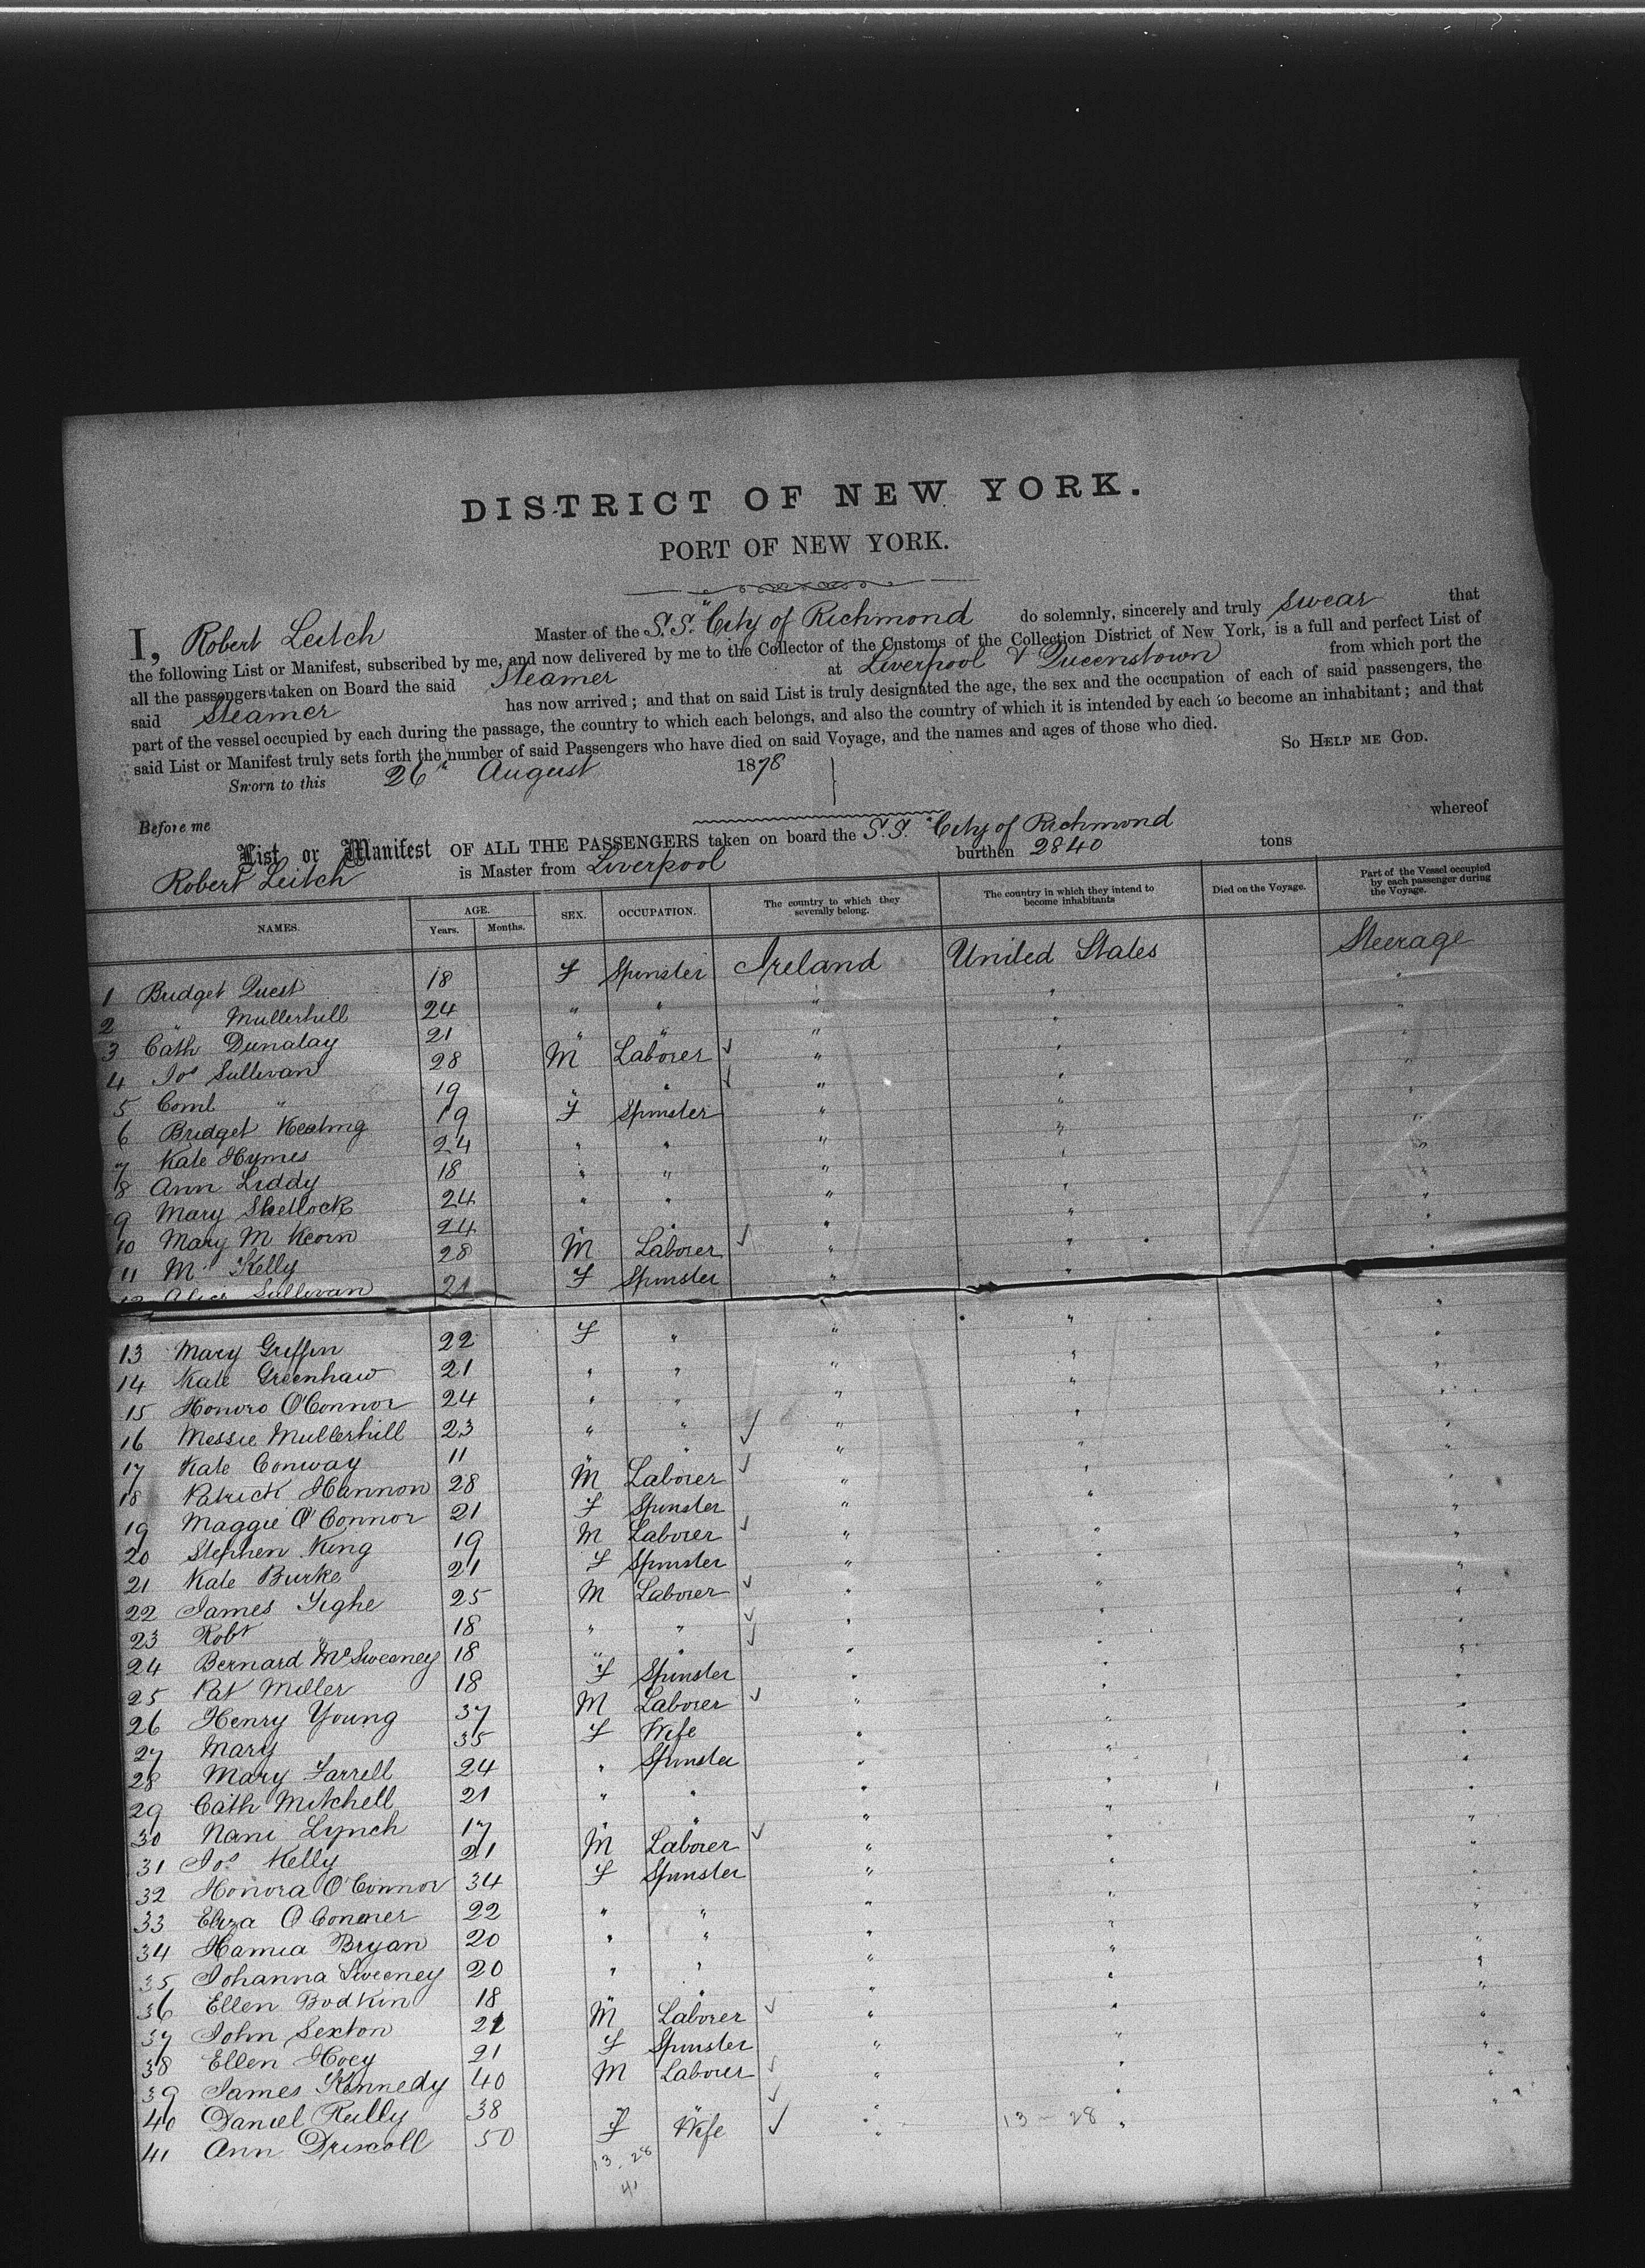 DISTRICT OF NEW YORK.
PORT OF NEW YORK.
I, Robert Leitch Master of the S.S. "City of Richmond do solemnly, sincerely and truly swear that
the following List or Manifest, subscribed by me, and now delivered by me to the Collector of the Customs of the Collection District of New York, is a full and perfect List of
all the passengers taken on Board the said Steamer at Liverpool & Queenstown from which port the
said Steamer has now arrived; and that on said List is truly designated the age, the sex and the occupation of each of said passengers, the
part of the vessel occupied by each during the passage, the country to which each belongs, and also the country of which it is intended by each to become an inhabitant; and that
said List or Manifest truly sets forth the number of said Passengers who have died on said Voyage, and the names and ages of those who died.
So HELP ME GOD.
Sworn to this 26" August 1878
Before me
List or Manifest OF ALL THE PASSENGERS taken on board the S.S. "City of Richmond whereof
Robert Leitch is Master from Liverpool burthen 2840 tons
NAMES. AGE. Years. Months. SEX. OCCUPATION. The country to which they severally belong. The country in which they intend to become inhabitants Died on the Voyage. Part of the Vessel occupied by each passenger during the Voyage.
1 Bridget Quest 18 F Spinster Ireland United States Steerage
2 " Mullerhill 24 " " " " "
3 Cath Dunalay 21 " " " " "
4 Jos Sullivan 28 M Laborer " " "
5 Cornl " 19 " " " " "
6 Bridget Keating 19 F Spinster " " "
7 Kate Hymes 24 " " " " "
8 Ann Liddy 18 " " " " "
9 Mary Shellock 24 " " " " "
10 Mary M Keorn 24 " " " " "
11 M Kelly 28 M Laborer " " "
12 Alice Sullivan 21 F Spinster " " "
13 Mary Griffin 22 F " " " "
14 Kate Greenhaw 21 " " " " "
15 Honoro O'Connor 24 " " " " "
16 Messie Mullerhill 23 " " " " "
17 Kate Conway 11 " " " " "
18 Patrick Hannon 28 M Laborer " " "
19 Maggie O'Connor 21 F Spinster " " "
20 Stephen King 19 M Laborer " " "
21 Kate Burke 21 F Spinster " " "
22 James Tighe 25 M Laborer " " "
23 Robt " 18 " " " " "
24 Bernard McSweeney 18 " " " " "
25 Pat Miller 18 F Spinster " " "
26 Henry Young 37 M Laborer " " "
27 Mary 35 F Wife " " "
28 Mary Farrell 24 " Spinster " " "
29 Cath Mitchell 21 " " " " "
30 Nani Lynch 17 " " " " "
31 Jos Kelly 21 M Laborer " " "
32 Honora O'Connor 34 F Spinster " " "
33 Eliza O'Conner 22 " " " " "
34 Hamia Bryan 20 " " " " "
35 Johanna Sweeney 20 " " " " "
36 Ellen Bodkin 18 " " " " "
37 John Sexton 22 M Laborer " " "
38 Ellen Hoey 21 F Spinster " " "
39 James Kennedy 40 M Laborer " " "
40 Daniel Reilly 38 " " " " "
41 Ann Driscoll 50 F Wife " 13 - 28 " "
13. 28
41